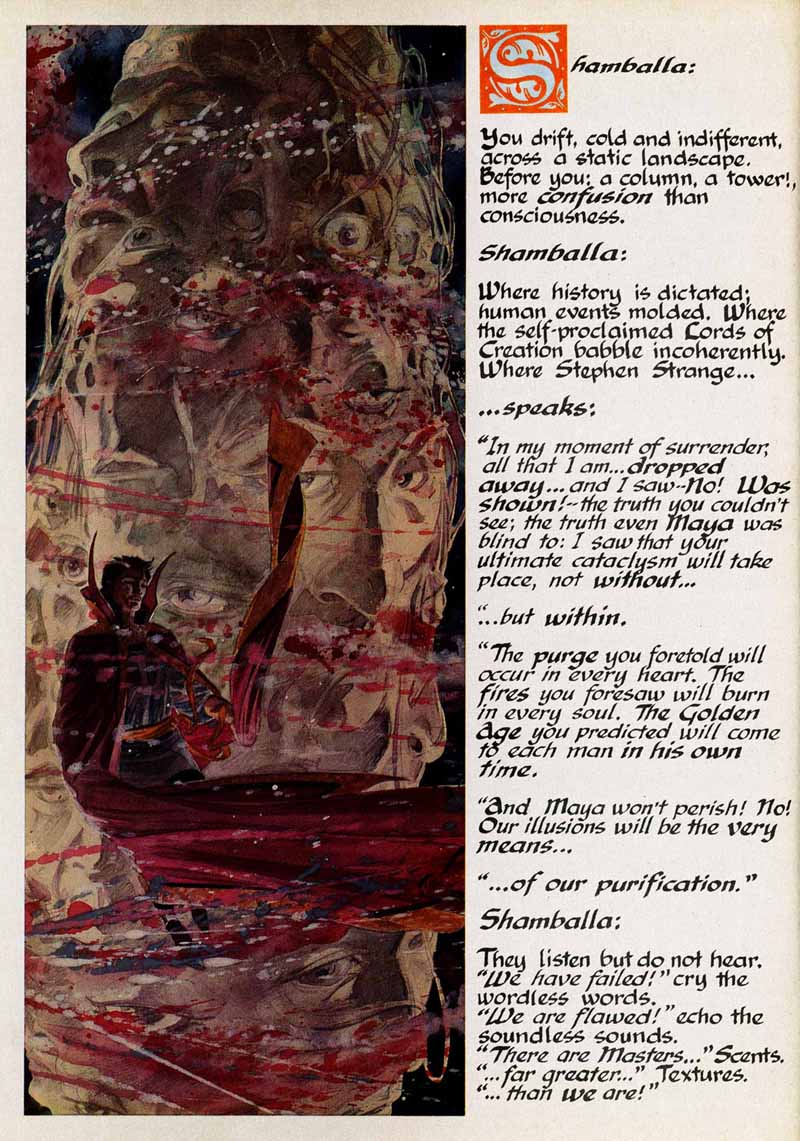 Shamballa:
You drift, cold and indifferent,
across a static landscape.
Before you: a column, a tower!,
more confusion than
consciousness.
Shamballa:
Where history is dictated;
human events molded. Where
the self-proclaimed Lords of
Creation babble incoherently.
Where Stephen Strange...
...speaks:
"In my moment of surrender,
all that I am...dropped
away...and I saw--No! Was
shown!--the truth you couldn't
see; the truth even Maya was
blind to: I saw that your
ultimate cataclysm will take
place, not without...
"...but within.
"The purge you foretold will
occur in every heart. The
fires you foresaw will burn
in every soul. The Golden
Age you predicted will come
to each man in his own
time.
"And Maya won't perish! No!
Our illusions will be the very
means...
"...of our purification."
Shamballa:
They listen but do not hear.
"We have failed!" cry the
wordless words.
"We are flawed!" echo the
soundless sounds.
"There are Masters..." Scents.
"...far greater..." Textures.
"...than we are!"